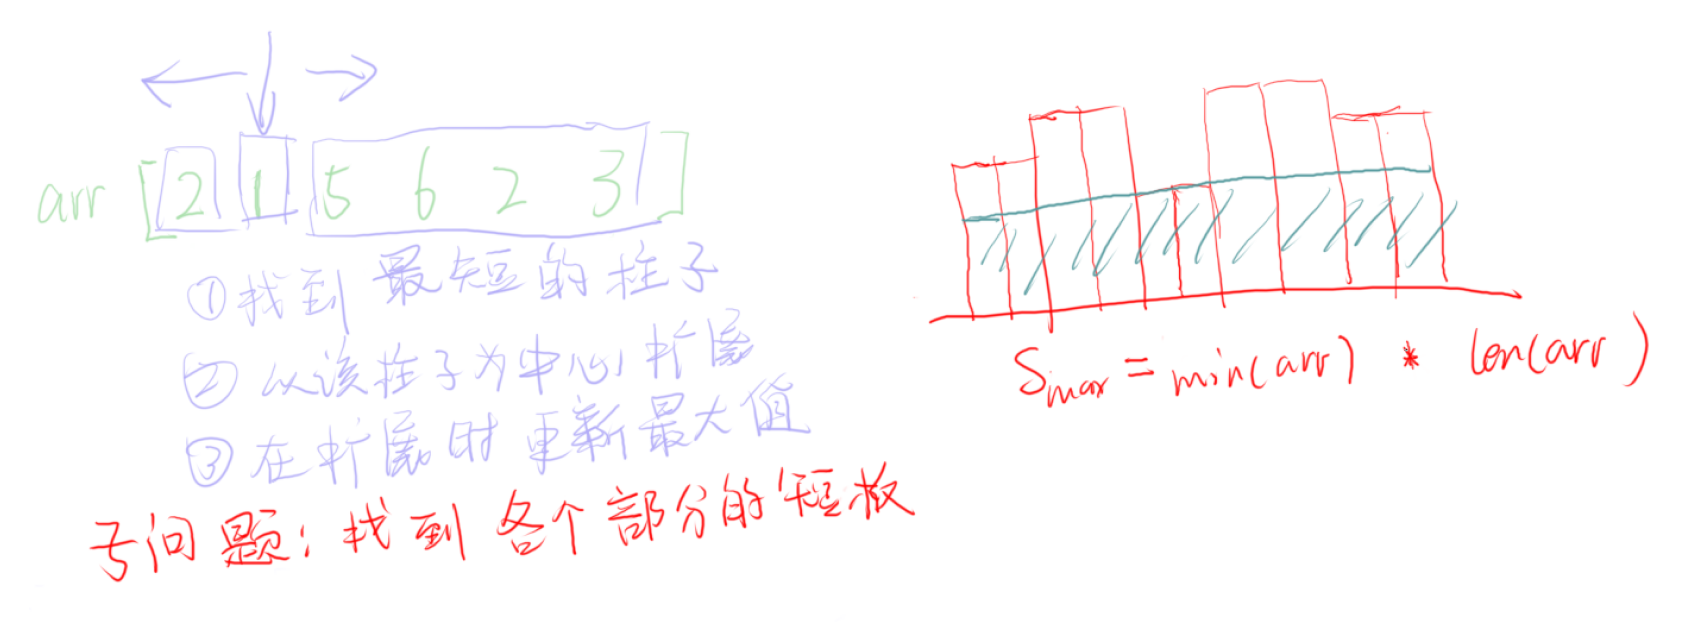 arr [ 2 1 5 6 2 3 ]
①找到最短的柱子
②以该柱子为中心扩展
③在扩展时更新最大值
子问题：找到各个部分的短板
Smax = min(arr) * len(arr)